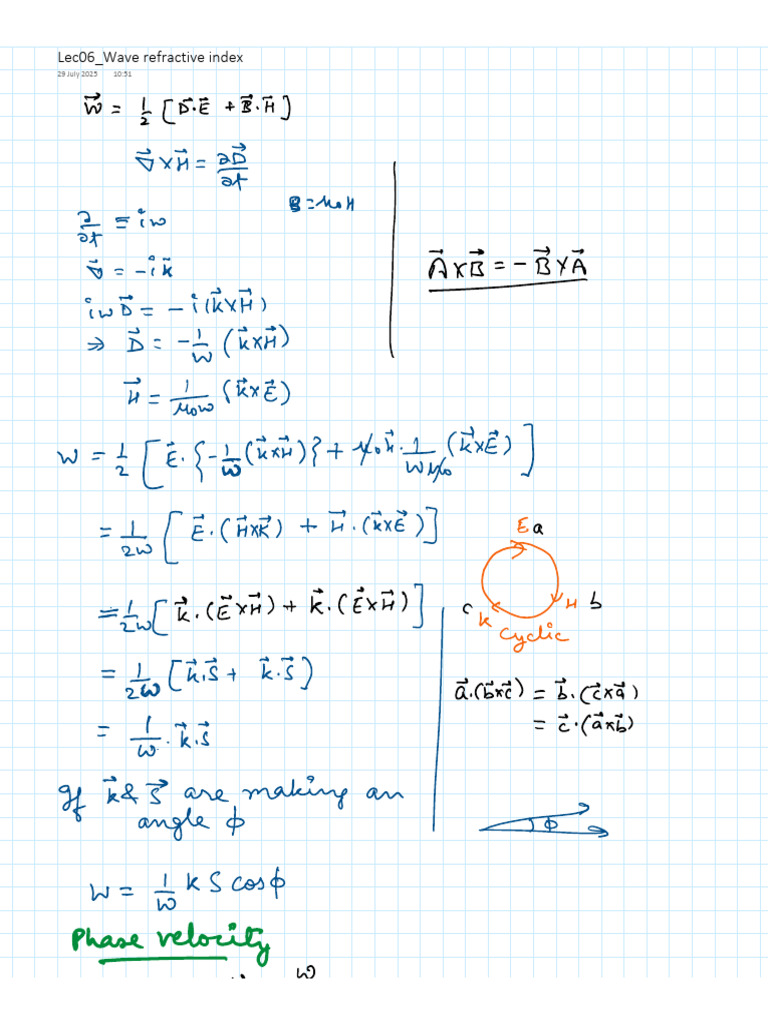 Lec06_Wave refractive index
29 July 2025 10:51
W⃗ = 1/2 [D⃗·E⃗ + B⃗·H⃗]
∇⃗×H⃗ = ∂D⃗/∂t
B = μ₀H
∂/∂t ≡ iω
∇⃗ = -ik⃗
iωD⃗ = -i(k⃗×H⃗)
⇒ D⃗ = -1/ω (k⃗×H⃗)
H⃗ = 1/μ₀ω (k⃗×E⃗)
A⃗×B⃗ = -B⃗×A⃗
W = 1/2 [E⃗·{-1/ω(k⃗×H⃗)} + μ₀H⃗·1/ωμ₀ (k⃗×E⃗)]
= 1/2ω [E⃗·(H⃗×K⃗) + H⃗·(k⃗×E⃗)]
= 1/2ω [k⃗·(E⃗×H⃗) + k⃗·(E⃗×H⃗)]
= 1/2ω [k⃗·S⃗ + k⃗·S⃗]
= 1/ω · k⃗·S⃗
E a
H b
c K
Cyclic
a⃗·(b⃗×c⃗) = b⃗·(c⃗×a⃗)
= c⃗·(a⃗×b⃗)
If k⃗ & S⃗ are making an
angle ϕ
ϕ
W = 1/ω k S cosϕ
Phase velocity
ω